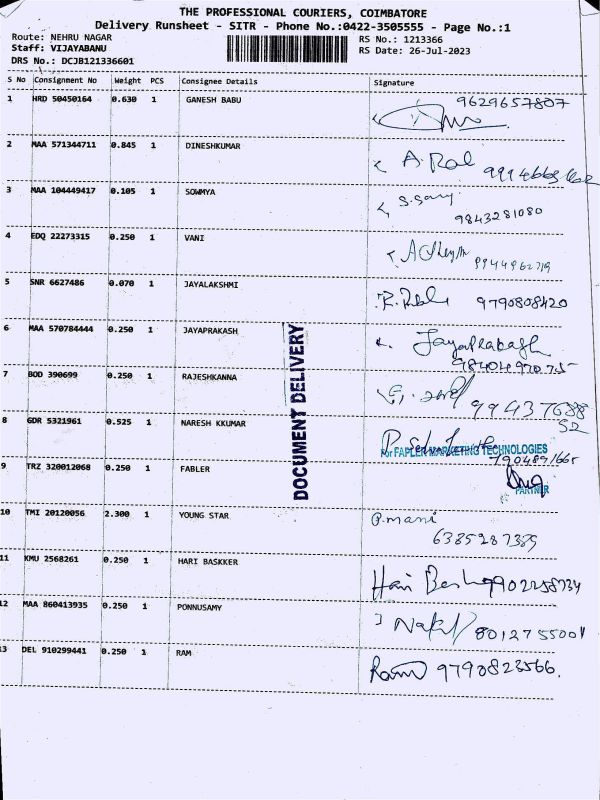 THE PROFESSIONAL COURIERS, COIMBATORE
Delivery Runsheet - SITR - Phone No.:0422-3505555 - Page No.:1
Route: NEHRU NAGAR RS No.: 1213366
Staff: VIJAYABANU RS Date: 26-Jul-2023
DRS No.: DCJB121336601
S No Consignment No Weight PCS Consignee Details Signature
1 HRD 50450164 0.630 1 GANESH BABU 9629657807
2 MAA 571344711 0.845 1 DINESHKUMAR
3 MAA 104449417 0.105 1 SOWMYA 9843281080
4 EDQ 22273315 0.250 1 VANI 9944962719
5 SNR 6627486 0.070 1 JAYALAKSHMI 9790808420
6 MAA 570784444 0.250 1 JAYAPRAKASH Jayaprakash
7 BOD 390699 0.250 1 RAJESHKANNA 99437688
52
8 GDR 5321961 0.525 1 NARESH KKUMAR
For FAPLER MARKETING TECHNOLOGIES
7904891665
9 TRZ 320012068 0.250 1 FABLER
PARTNER
DOCUMENT DELIVERY
10 TMI 20120056 2.300 1 YOUNG STAR P.mani
6385287385
11 KMU 2568261 0.250 1 HARI BASKKER Hari
12 MAA 860413935 0.250 1 PONNUSAMY 8012755001
13 DEL 910299441 0.250 1 RAM Ram 9790823566.